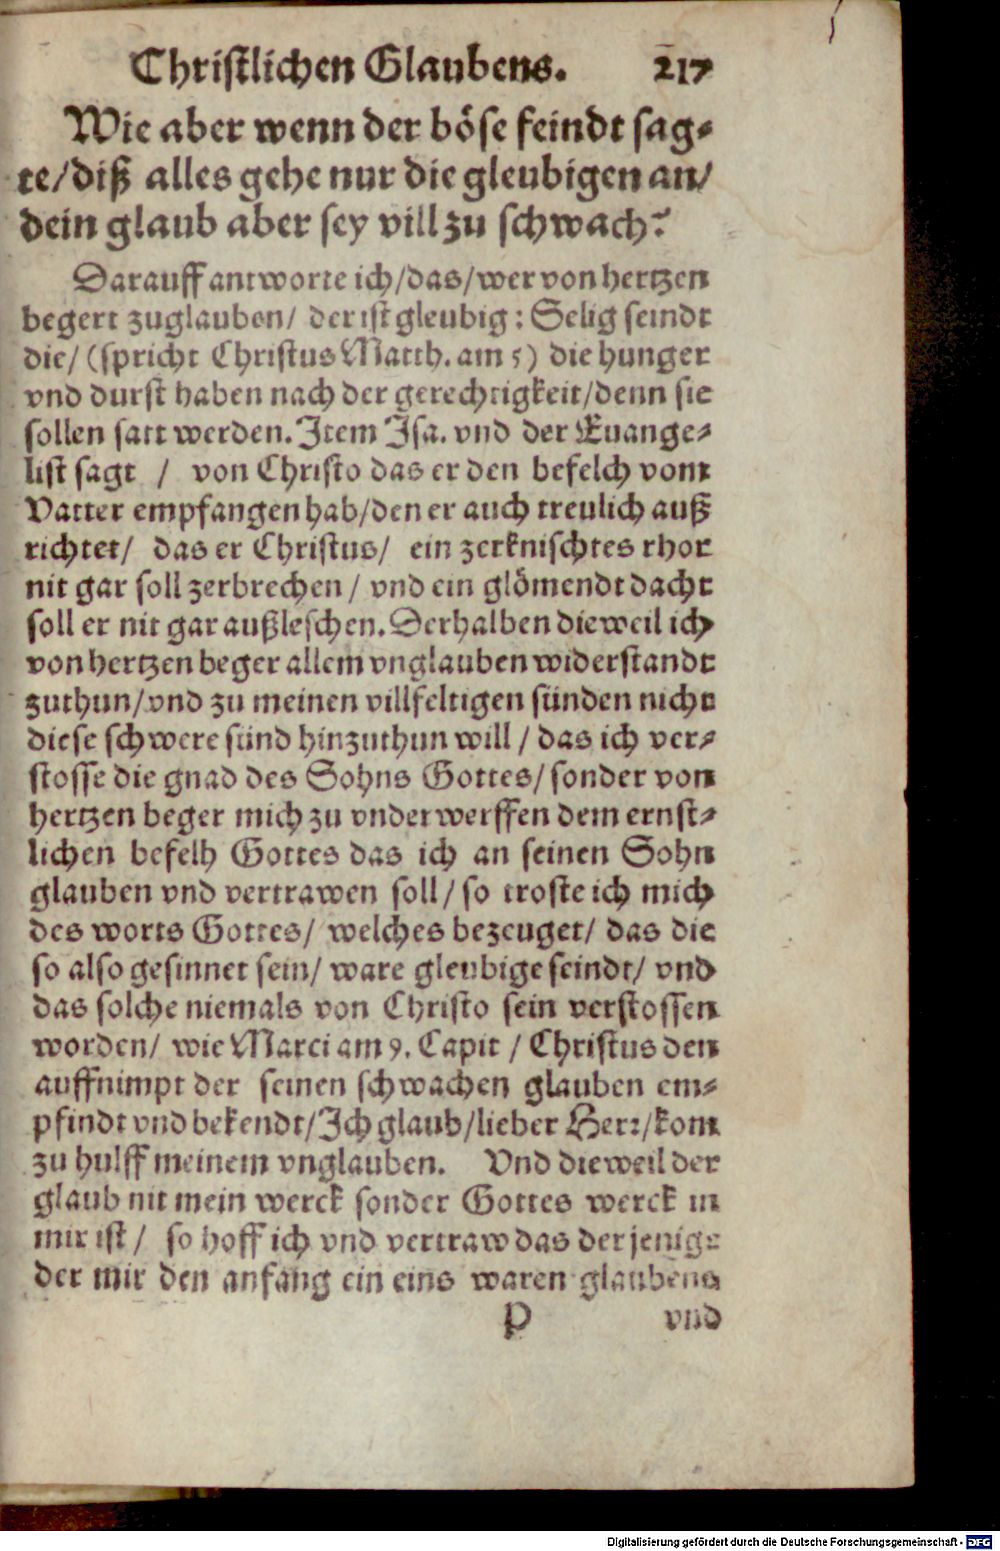 Christlichen Glaubens. 217
Wie aber wenn der böse feindt sag⸗
te/diß alles gehe nur die gleubigen an/
dein glaub aber sey vill zu schwach?
Darauff antworte ich/das/wer von hertzen
begert zuglauben/ der ist gleubig: Selig seindt
die/ (spricht Christus Matth. am 5) die hunger
vnd durst haben nach der gerechtigkeit/denn sie
sollen satt werden. Item Isa. vnd der Euange⸗
list sagt / von Christo das er den befelch vom
Vatter empfangen hab/den er auch treulich auß
richtet/ das er Christus/ ein zerknischtes rhor
nit gar soll zerbrechen / vnd ein glömendt dacht
soll er nit gar außleschen. Derhalben dieweil ich
von hertzen beger allem vnglauben widerstandt
zuthun/vnd zu meinen villfeltigen sünden nicht
diese schwere sünd hinzuthun will / das ich ver⸗
stosse die gnad des Sohns Gottes/ sonder von
hertzen beger mich zu vnderwerffen dem ernst⸗
lichen befelh Gottes das ich an seinen Sohn
glauben vnd vertrawen soll/ so troste ich mich
des worts Gottes/ welches bezeuget/ das die
so also gesinnet sein/ ware gleubige seindt/ vnd
das solche niemals von Christo sein verstossen
worden/ wie Marci am 9. Capit / Christus den
auffnimpt der seinen schwachen glauben em⸗
pfindt vnd bekendt/Ich glaub/lieber Herr/kom
zu hulff meinem vnglauben. Vnd dieweil der
glaub nit mein werck sonder Gottes werck in
mir ist / so hoff ich vnd vertraw das der jenige
der mir den anfang ein eins waren glaubens
P vnd
Digitalisierung gefördert durch die Deutsche Forschungsgemeinschaft - DFG